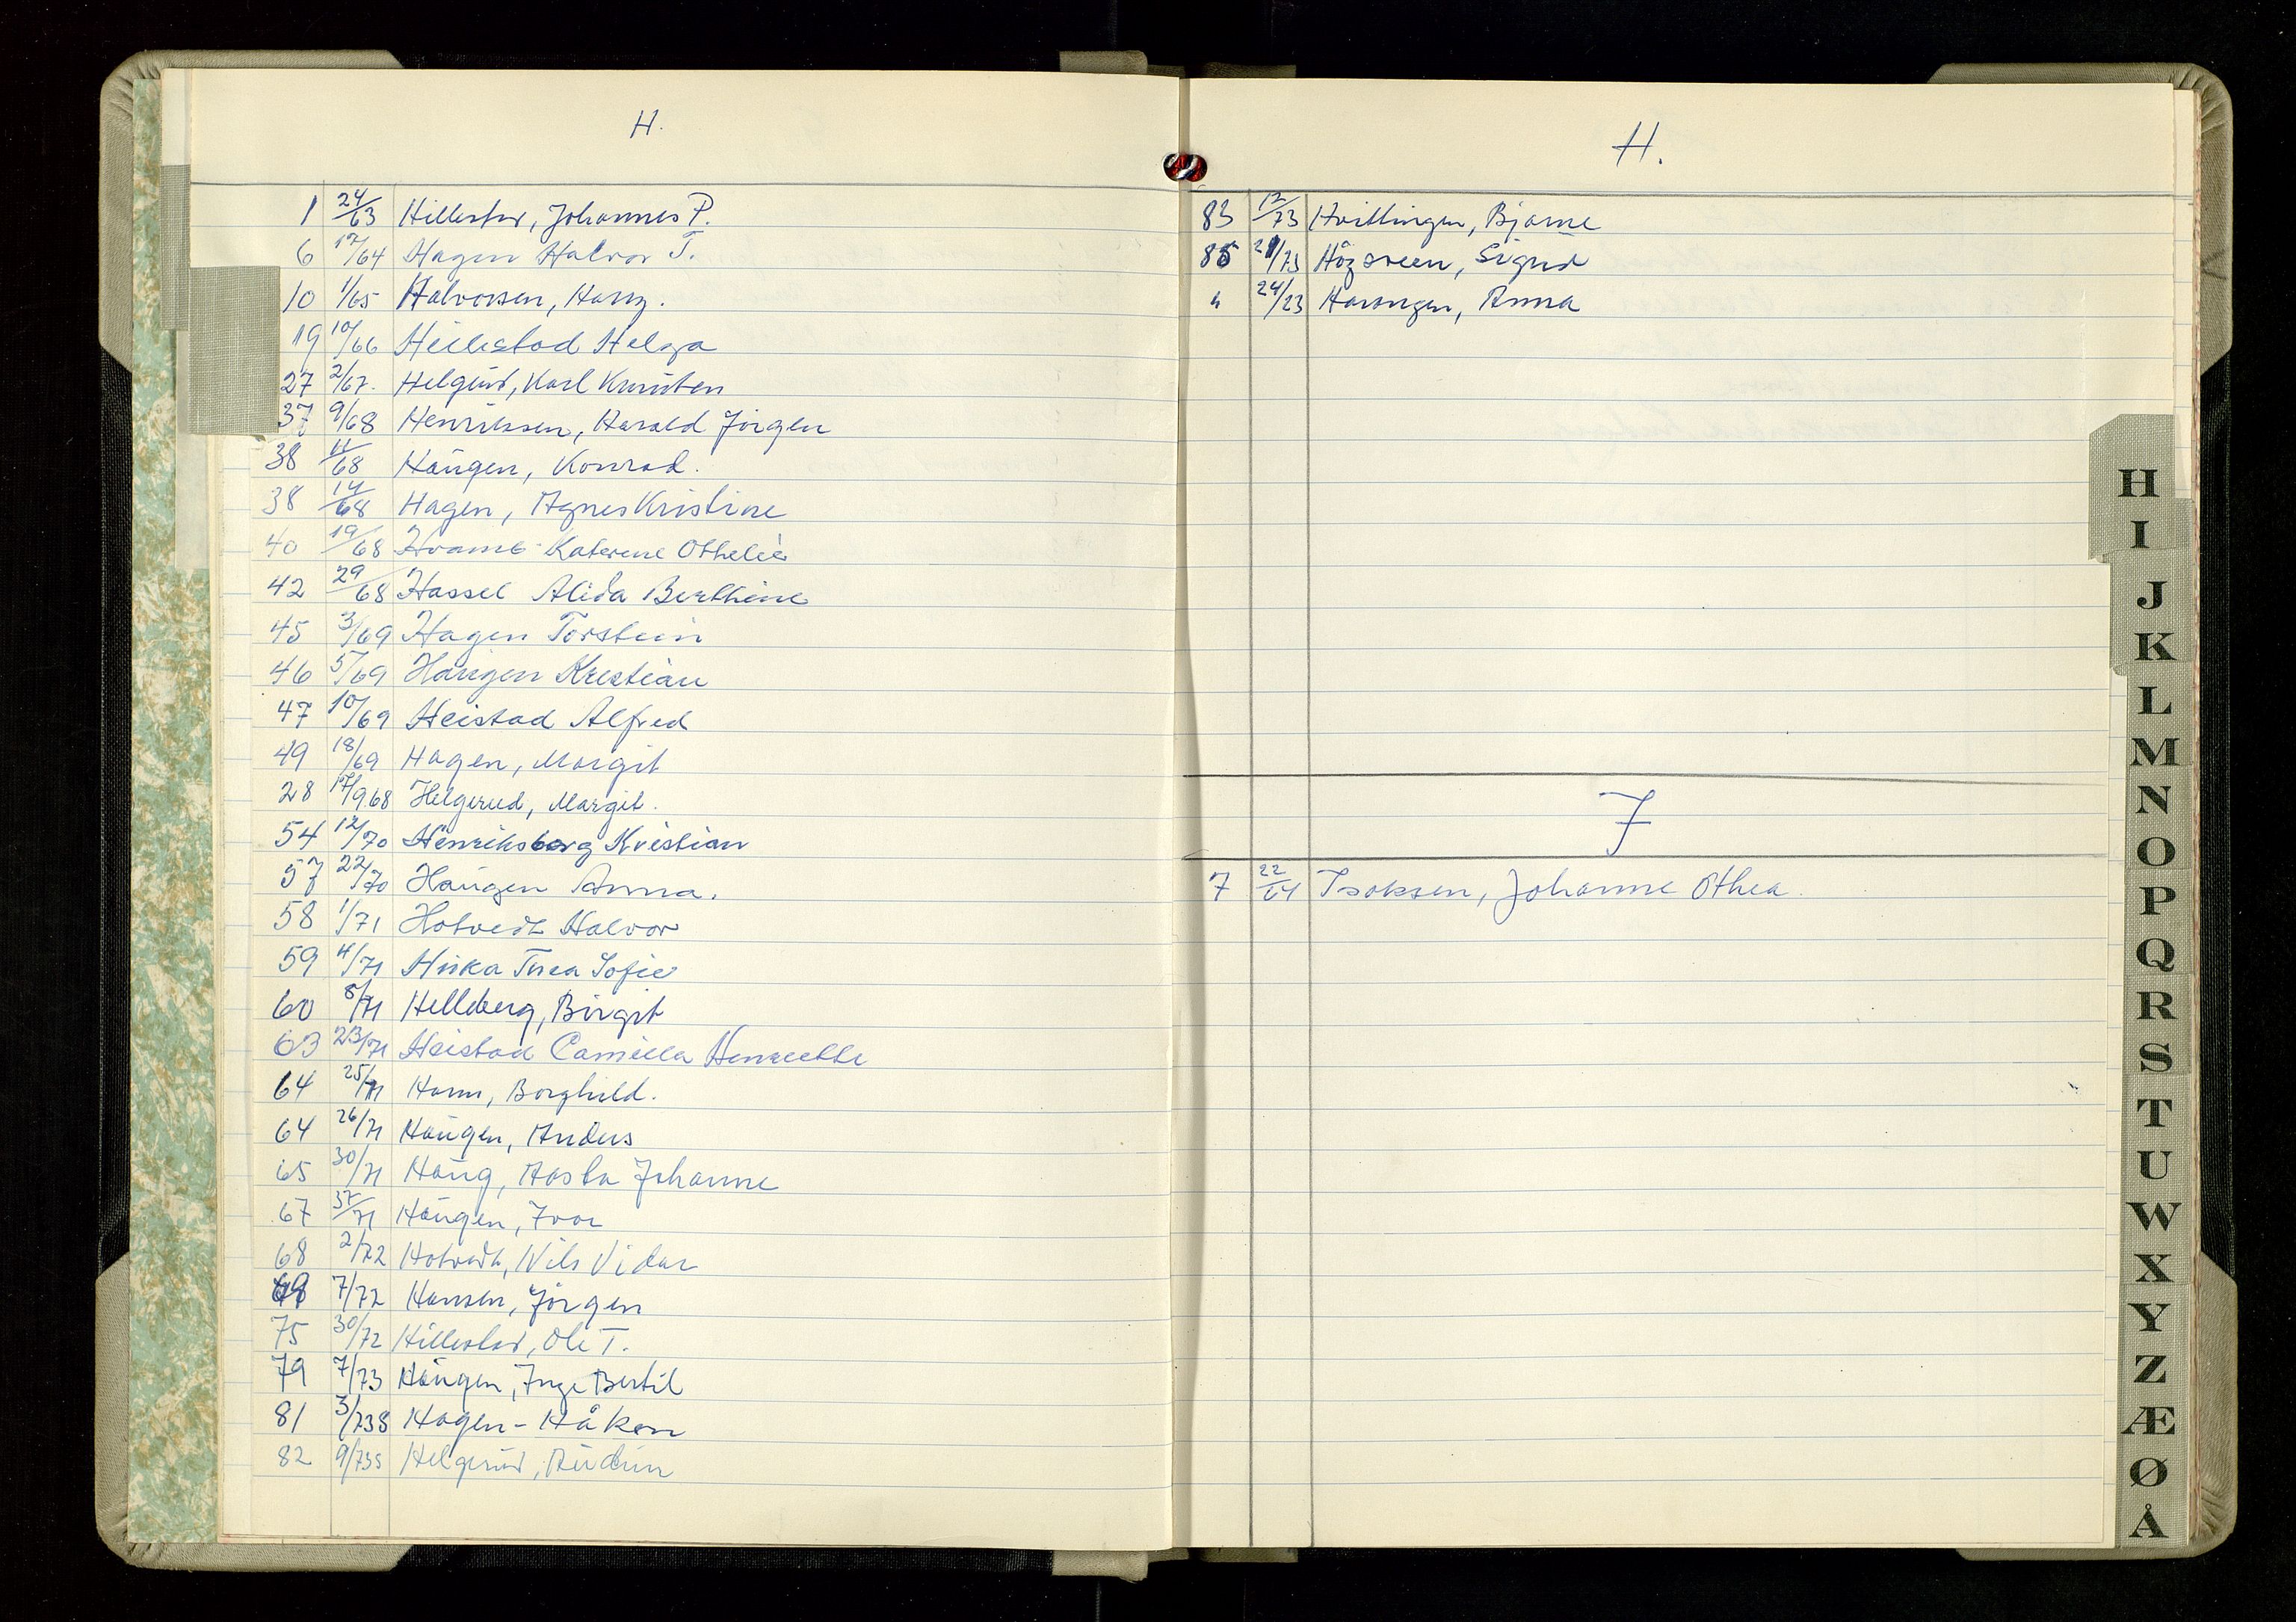 H.
1 24/63 Hillestad, Johannes P.
6 17/64 Hagen Halvor T.
10 1/65 Halvorsen, Harry.
19 10/66 Hillestad Helga
27 2/67. Helgerud, Karl Knudsen
37 9/68 Henriksen, Harald Jörgen
38 11/68 Haugen, Konrad.
38 14/68 Hagen, Agnes Kristine
40 19/68 Hvamb Katerine Othelie
42 29/68 Hassel Alida Berthine
45 3/69 Hagen Torstein
46 5/69 Haugen Kristian
47 10/69 Heistad Alfred
49 18/69 Hagen, Margit
28 17/9.68 Helgerud, Margit.
54 12/70 Henriksberg Kristian
57 22/70 Haugen Anna.
58 1/71 Hotvedt Halvor
59 4/71 Thea Sofie
60 8/71 Helleberg, Birgit
63 23/71 Heistad Camilla Henriette
64 25/71 Borghild.
64 26/71 Haugen, Anders
65 30/71 Haug, Aasta Johanne
67 37/71 Haugen, Ivar
68 2/72 Hotvedt, Nils Vidar
7/72 Hansen, Jörgen
75 30/72 Hillestad, Ole T.
79 7/73 Haugen, Inge Bertil
81 3/73S Hagen - Håkon
82 9/73S Helgerud, Audun
H.
83 12/73 Hvittingen, Bjarne
85 21/73 Sigurd
" 24/73 Anna
I
7 22/64 Isaksen, Johanne Othea.
H
I
J
K
L
M
N
O
P
Q
R
S
T
U
W
X
Y
Z
Æ
Ø
Å